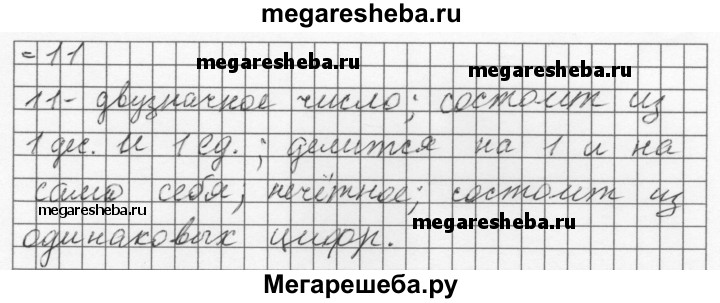 megaresheba.ru
= 11
megaresheba.ru
megaresheba.ru
11- двузначное число; состоит из
1 дес. и 1 ед.; делится на 1 и на
само себя; нечётное; состоит из
megaresheba.ru
megaresheba.ru
одинаковых цифр.
Мегарешеба.ру